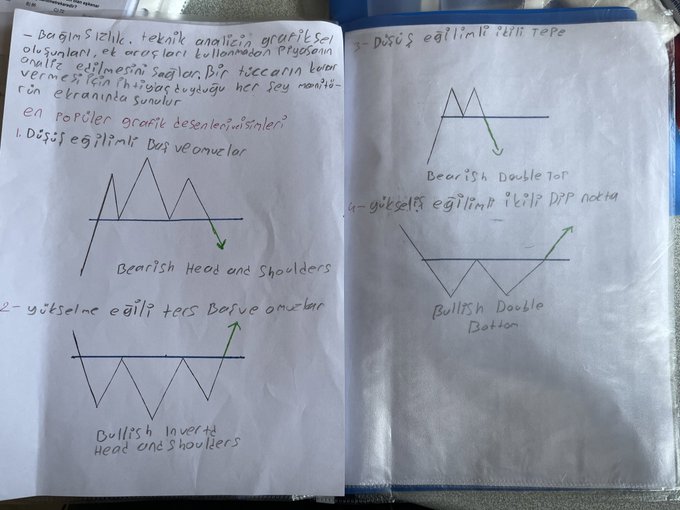 - Bağımsızlık. teknik analizin grafiksel
oluşumları, ek araçları kullanmadan piyasanın
analiz edilmesini sağlar. Bir tüccarın karar
vermesi için ihtiyaç duyduğu her şey monitö-
rün ekranında sunulur
en popüler grafik desenleri isimleri
1. Düşüş eğilimli Baş ve omuzlar
Bearish Head and Shoulders
2- yükselme eğili ters Baş ve omuzlar
Bullish Inverted
Head and Shoulders
3- Düşüş eğilimli ikili Tepe
Bearish Double Top
4- yükseliş eğilimli ikili Dip nokta
Bullish Double
Bottom